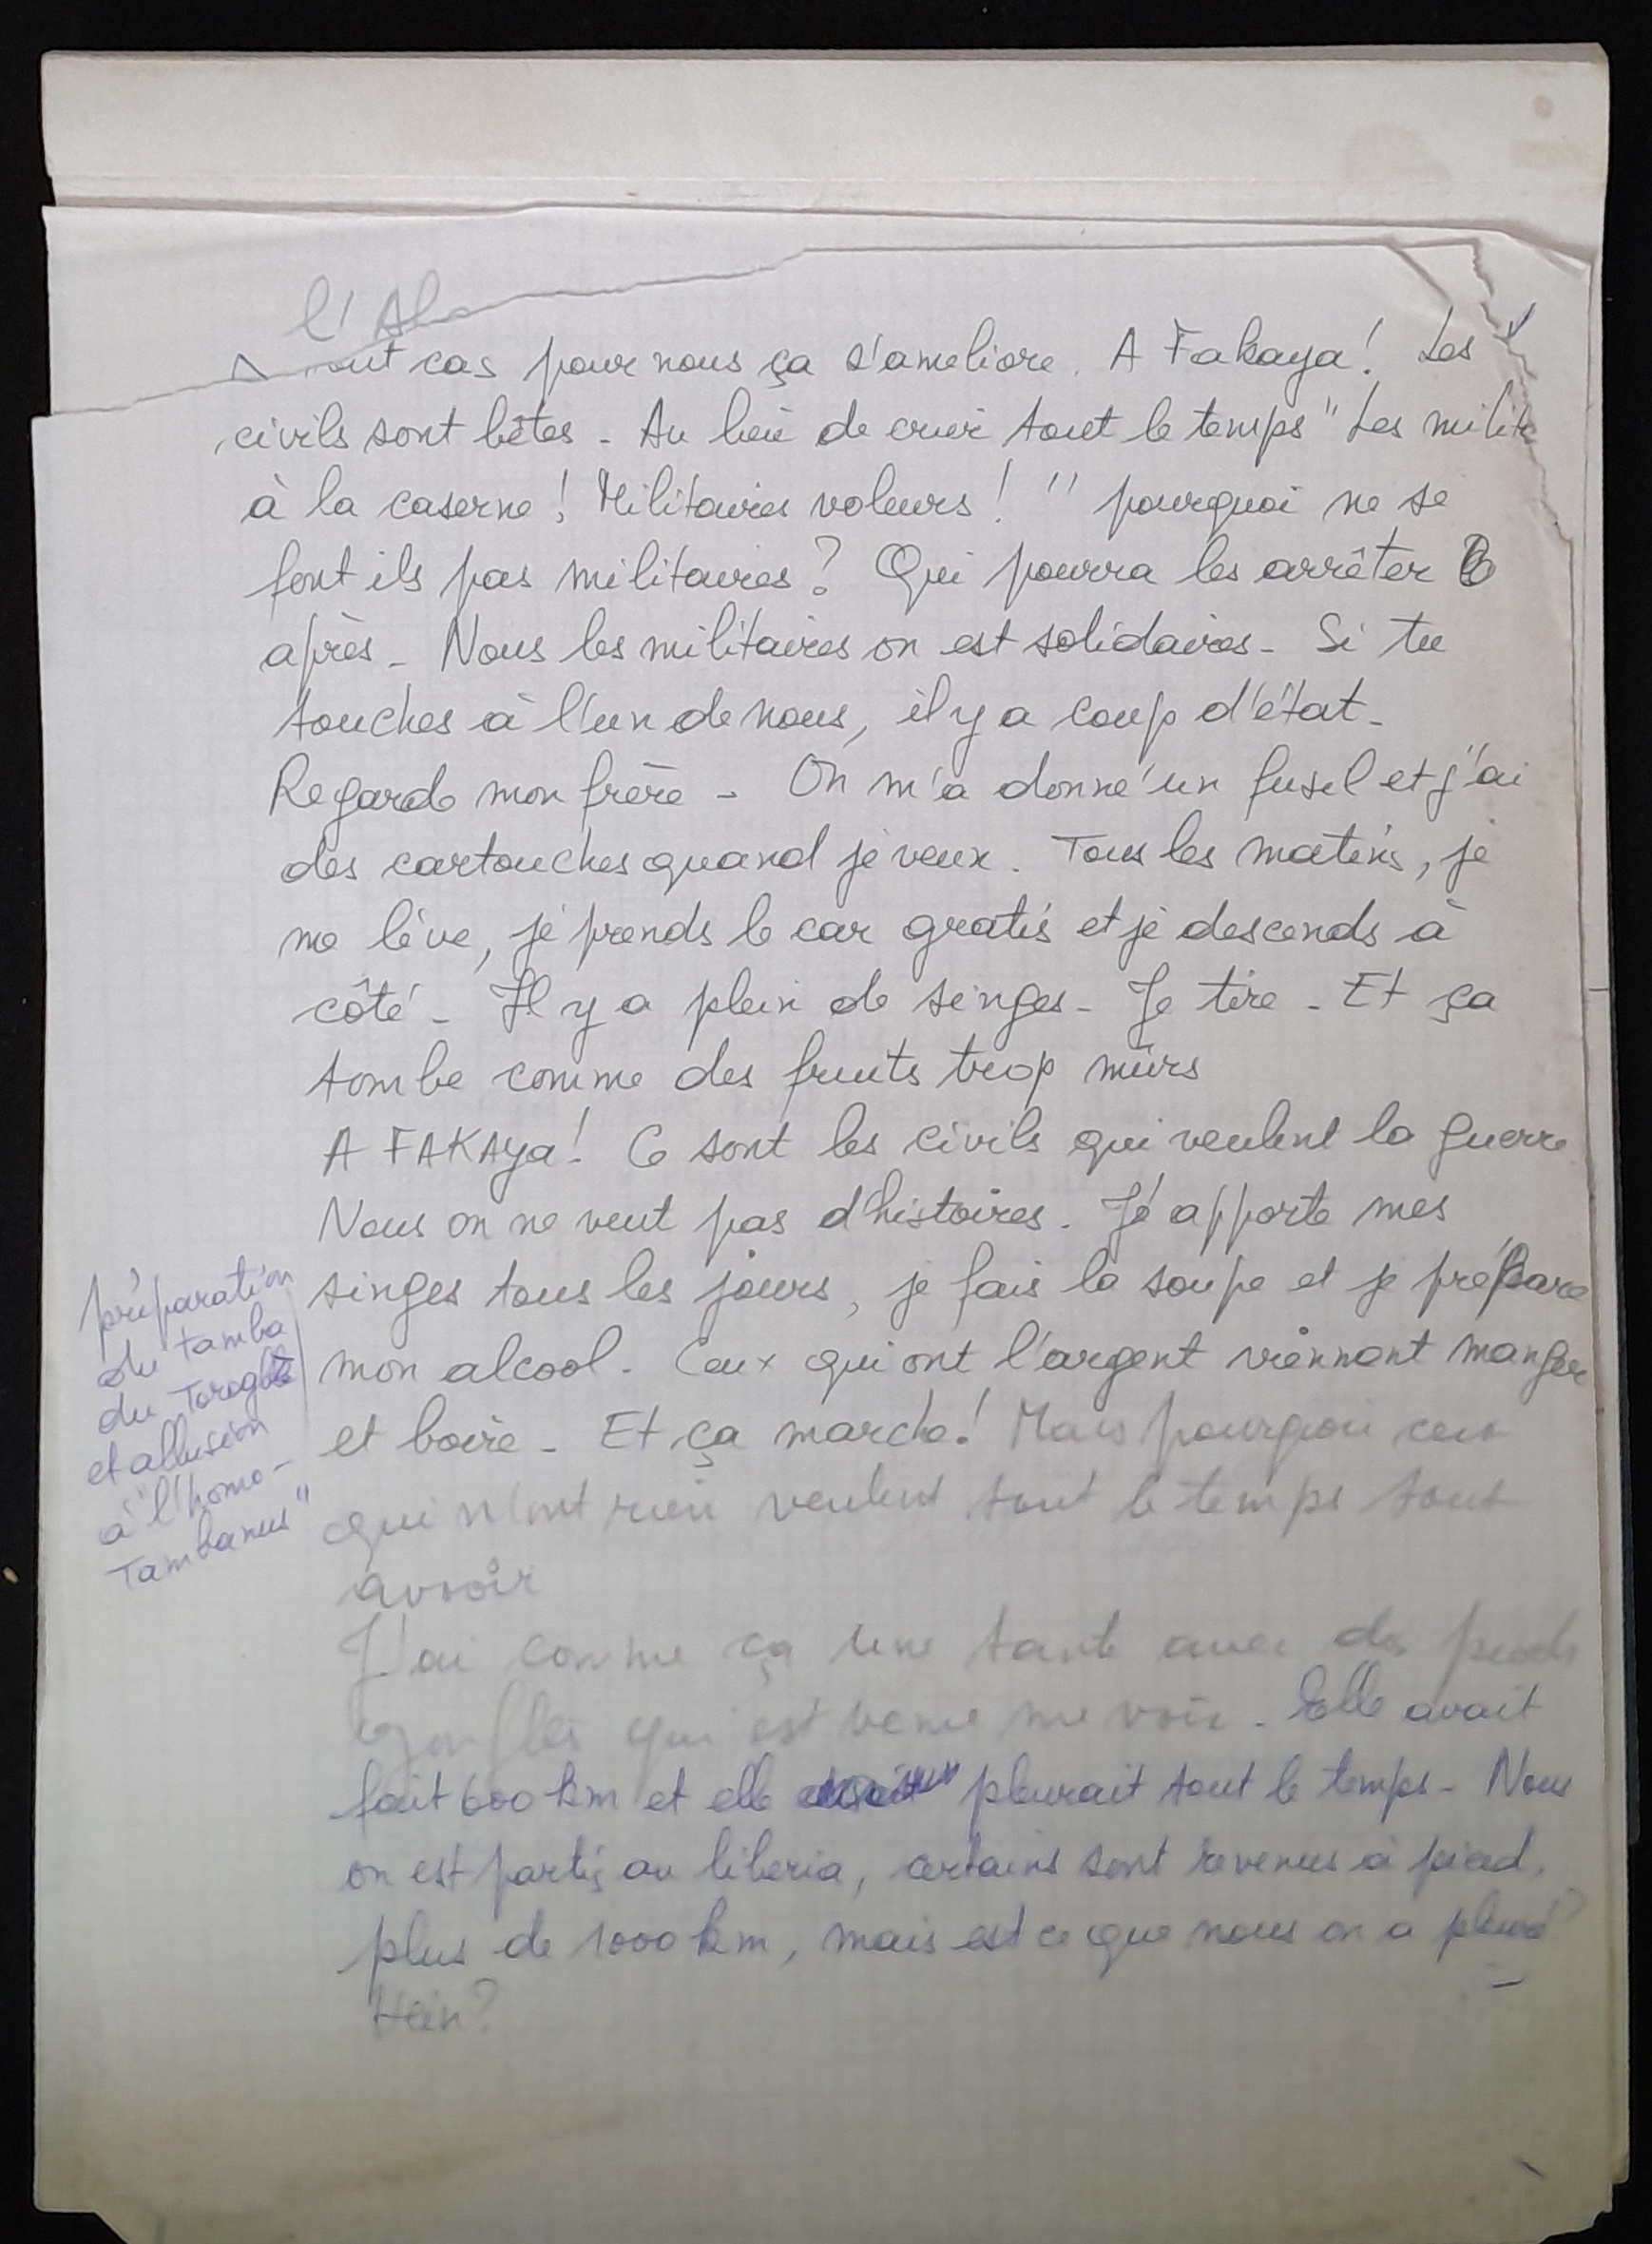 l'Al
tout cas pour nous ça s'ameliore. A Fakaya! Les
civils sont bêtes - Au lieu de crier tout le temps "Les milit
à la caserne! Militaires voleurs!" pourquoi ne se
font ils pas militaires? Qui pourra les arrêter
après - Nous les militaires on est solidaires - Si tu
touches à l'un de nous, il y a coup d'état -
Regarde mon frère - On m'a donné un fusil et j'ai
des cartouches quand je veux. Tous les matins, je
me lève, je prends le car gratis et je descends à
côté - Il y a plein de singes - Je tire - Et ça
tombe comme des fruits trop mûrs
A FAKAya! Ce sont les civils qui veulent la guerre
Nous on ne veut pas d'histoires. J'apporte mes
singes tous les jours, je fais la soupe et je prépare
mon alcool - Ceux qui ont l'argent viennent manger
et boire - Et ça marche! Mais pourquoi ceux
qui n'ont rien veulent tout le temps tout
avoir
J'ai comme ça une tante avec des pieds
gonflés qui est venue me voir - Elle avait
fait 600 km et elle pleurait tout le temps - Nous
on est partis au liberia, certains sont revenus à pied,
plus de 1000 km, mais est ce que nous on a pleuré?
Hein?
préparation
du tamba
du
et allusion
à "l'homo-
Tambanus"